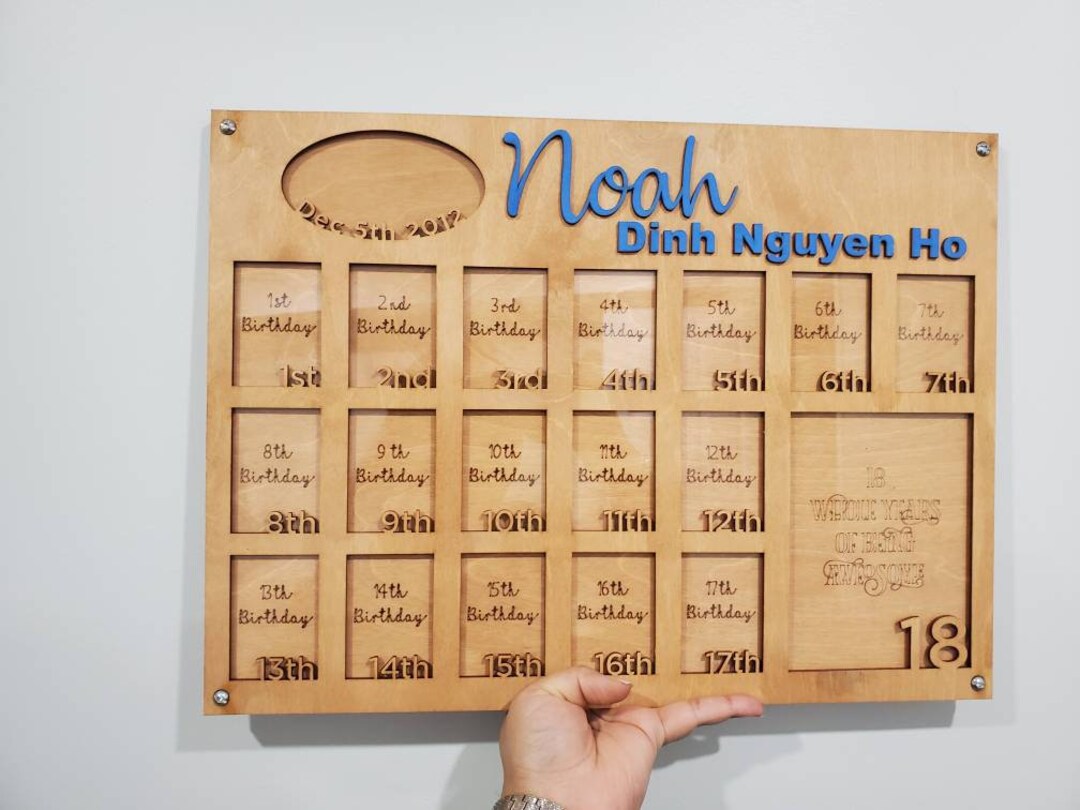 Noah
Dinh Nguyen Ho
Dec 5th 2012
1st
Birthday
1st
2nd
Birthday
2nd
3rd
Birthday
3rd
4th
Birthday
4th
5th
Birthday
5th
6th
Birthday
6th
7th
Birthday
7th
8th
Birthday
8th
9th
Birthday
9th
10th
Birthday
10th
11th
Birthday
11th
12th
Birthday
12th
13th
Birthday
13th
14th
Birthday
14th
15th
Birthday
15th
16th
Birthday
16th
17th
Birthday
17th
18
WHOLE YEARS
OF BEING
AWESOME
18